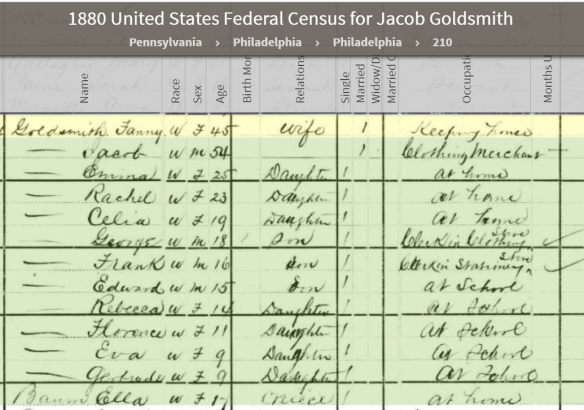 1880 United States Federal Census for Jacob Goldsmith
Pennsylvania › Philadelphia › Philadelphia › 210
Name Race Sex Age Birth Mon Relations Single Married Widow/D Married C Occupati Months U
Goldsmith Fanny W F 45 Wife 1 Keeping house
— Jacob W M 54 1 Clothing Merchant
— Emma W F 25 Daughter 1 at home
— Rachel W F 23 Daughter 1 at home
— Celia W F 19 Daughter 1 at home
— George W M 18 Son 1 Clerk in Clothing Store
— Frank W M 16 Son 1 Clerk in Stationery Store
— Edward W M 15 Son 1 at School
— Rebecca W F 14 Daughter 1 at School
— Florence W F 11 Daughter 1 at School
— Eva W F 9 Daughter 1 at School
— Gertrude W F 9 Daughter 1 at School
Baum Ella W F 17 Niece 1 at home